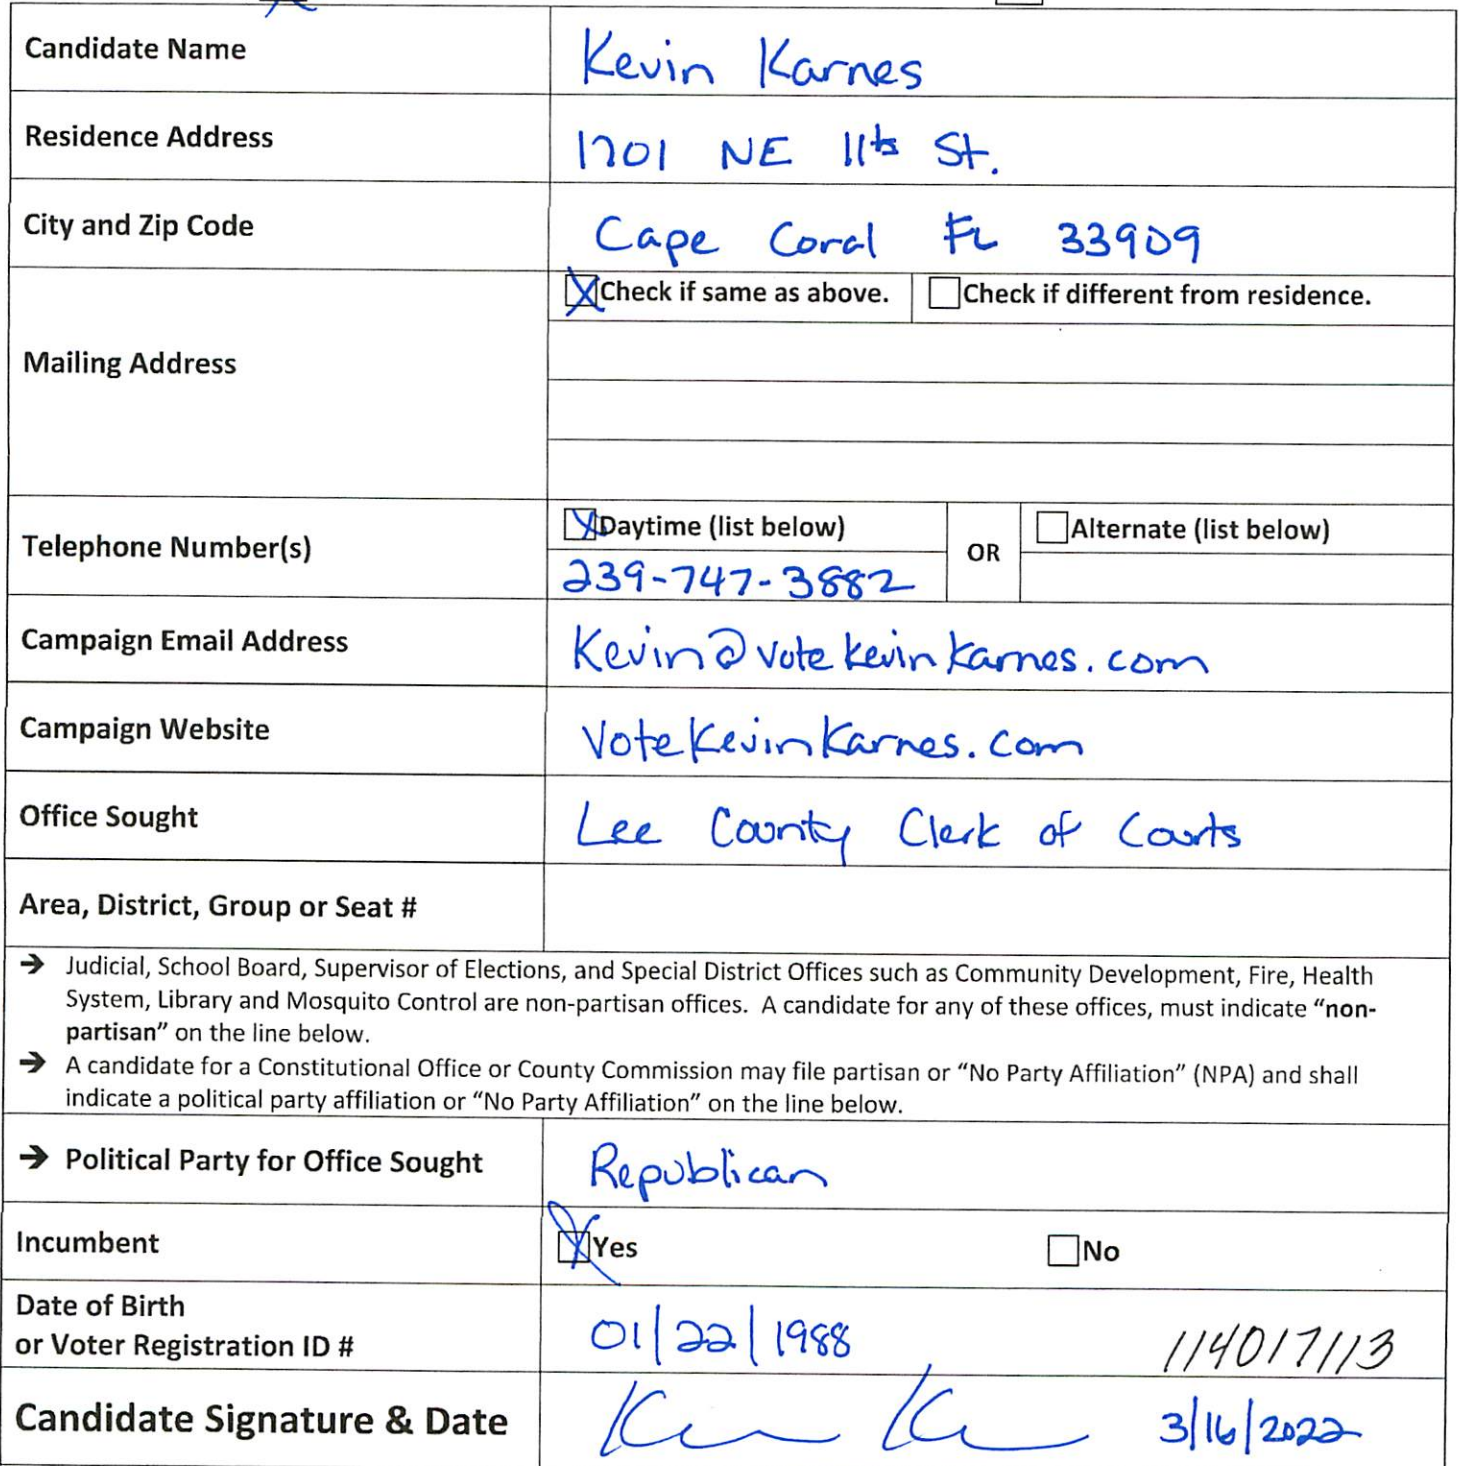 Candidate Name Kevin Karnes
Residence Address 1701 NE 11th St.
City and Zip Code Cape Coral FL 33909
Check if same as above. Check if different from residence.
Mailing Address
Daytime (list below) OR Alternate (list below)
Telephone Number(s)
239-747-3882
Campaign Email Address Kevin@votekevinkarnes.com
Campaign Website VoteKevinKarnes.com
Office Sought Lee County Clerk of Courts
Area, District, Group or Seat #
→ Judicial, School Board, Supervisor of Elections, and Special District Offices such as Community Development, Fire, Health
System, Library and Mosquito Control are non-partisan offices. A candidate for any of these offices, must indicate “non-
partisan” on the line below.
→ A candidate for a Constitutional Office or County Commission may file partisan or “No Party Affiliation” (NPA) and shall
indicate a political party affiliation or “No Party Affiliation” on the line below.
→ Political Party for Office Sought Republican
Incumbent Yes No
Date of Birth
or Voter Registration ID # 01/22/1988 114017113
Candidate Signature & Date 3/16/2022